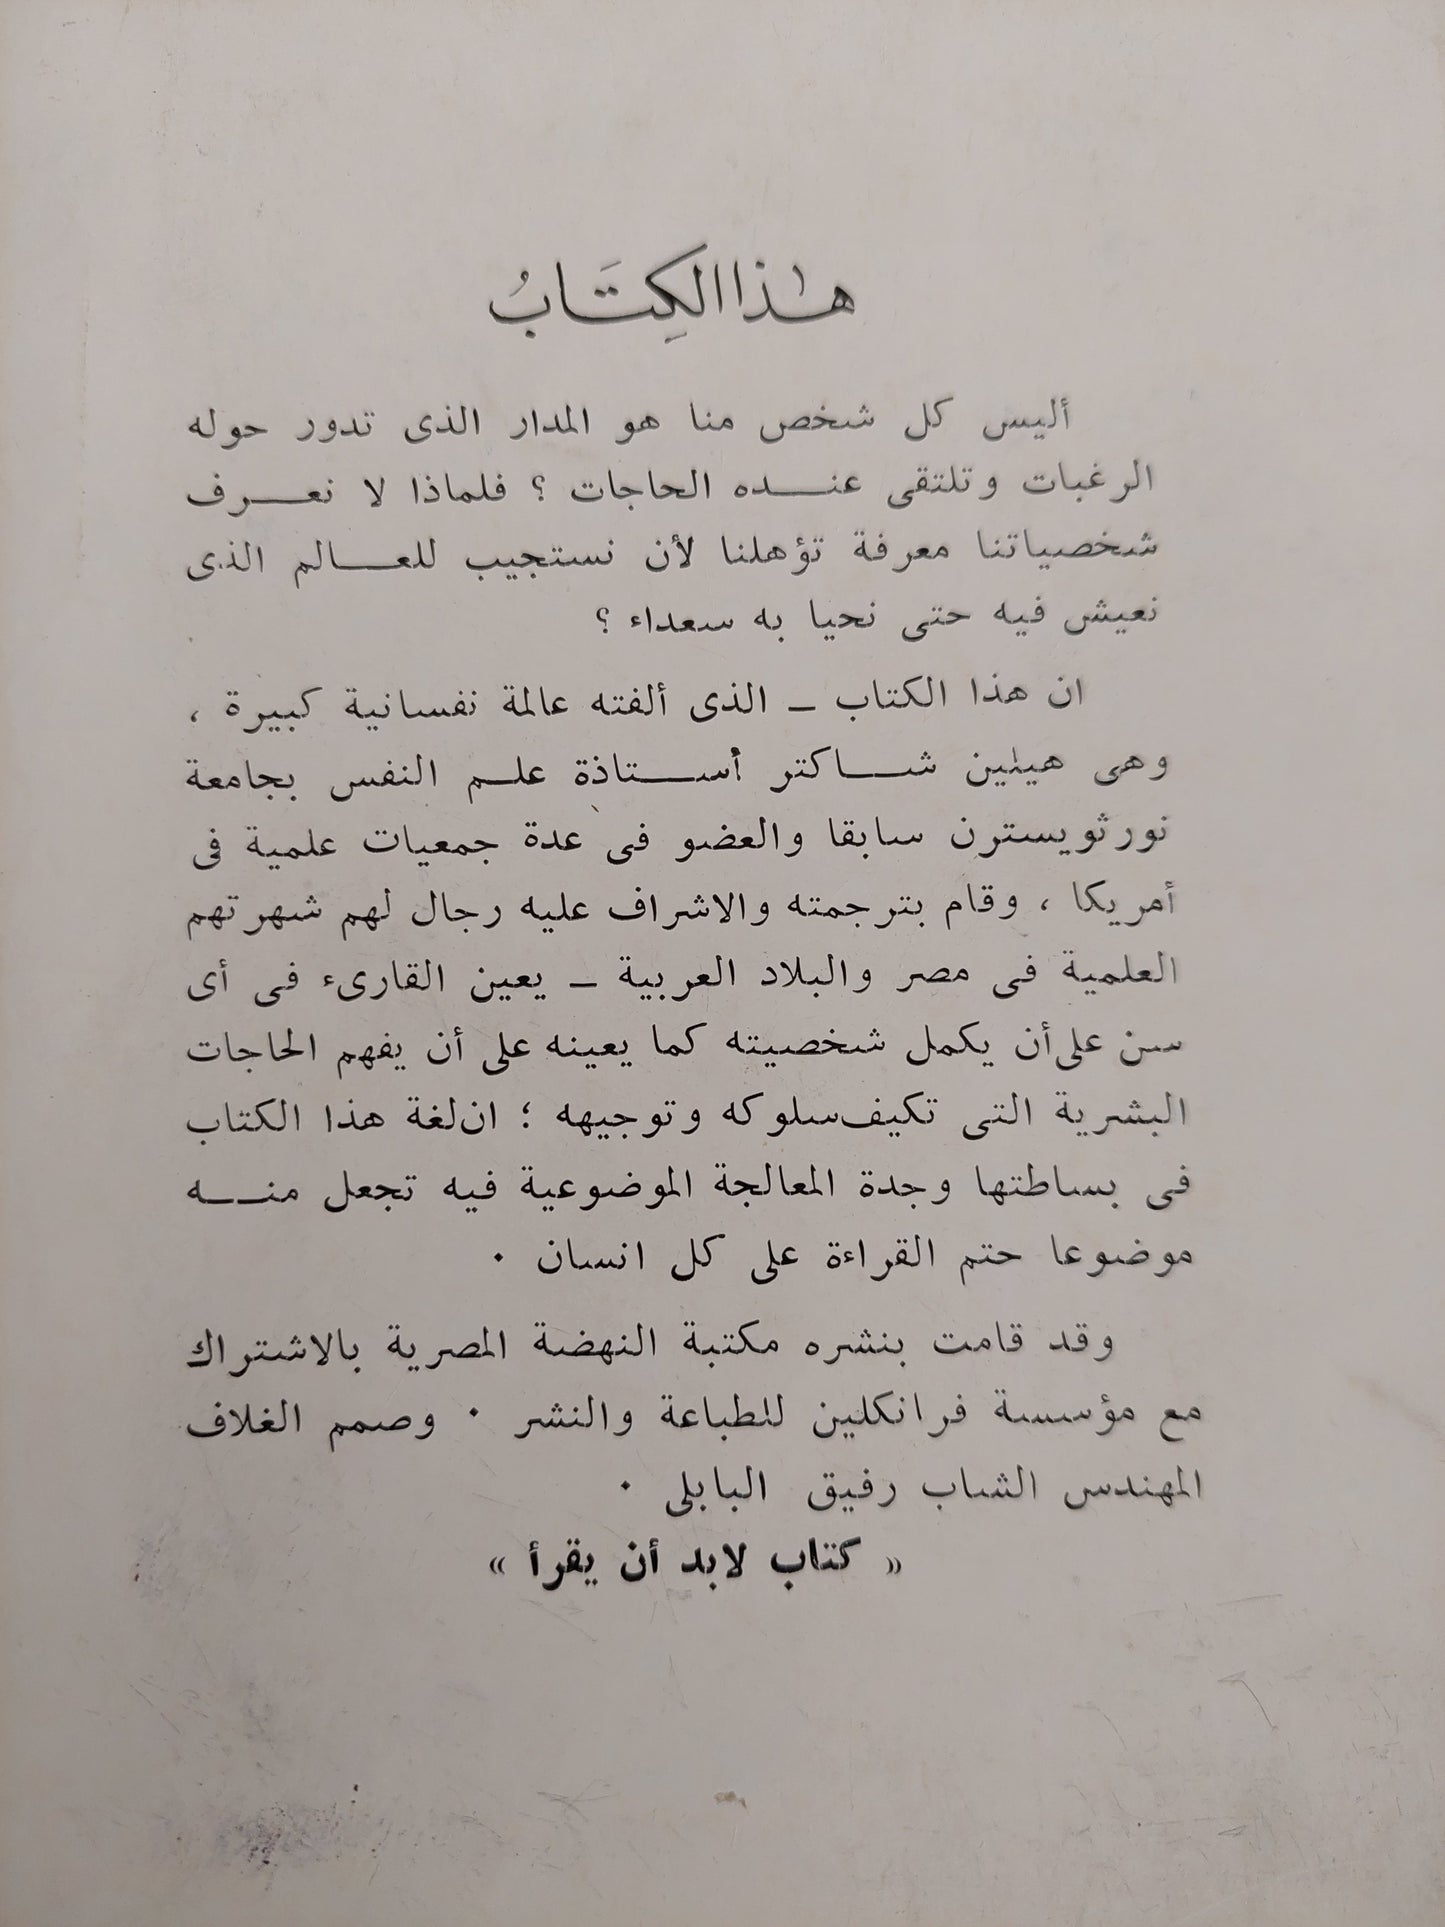 هٰذا الكِتَابُ
أليس كل شخص منا هو المدار الذى تدور حوله
الرغبات وتلتقى عنـــده الحاجات ؟ فلماذا لا نعـــرف
شخصياتنا معرفة تؤهلنا لأن نستجيب للعـــالم الذى
نعيش فيه حتى نحيا به سعداء ؟
ان هذا الكتاب ــ الذى ألفته عالمة نفسانية كبيرة ،
وهى هيلين شـــاكتر أســـتاذة علـم النفس بجامعة
نورثويسترن سابقا والعضو فى عدة جمعيات علمية فى
أمريكا ، وقام بترجمته والاشراف عليه رجال لهم شهرتهم
العلمية فى مصر والبلاد العربية ــ يعين القارىء فى أى
سن على أن يكمل شخصيته كما يعينه على أن يفهم الحاجات
البشرية التى تكيف سلوكه وتوجيهه ؛ ان لغة هذا الكتاب
فى بساطتها وجدة المعالجة الموضوعية فيه تجعل منـــه
موضوعا حتم القراءة على كل انسان ٠
وقد قامت بنشره مكتبة النهضة المصرية بالاشتراك
مع مؤسسة فرانكلين للطباعة والنشر ٠ وصمم الغلاف
المهندس الشاب رفيق البابلى ٠
« كتاب لابد أن يقرأ »